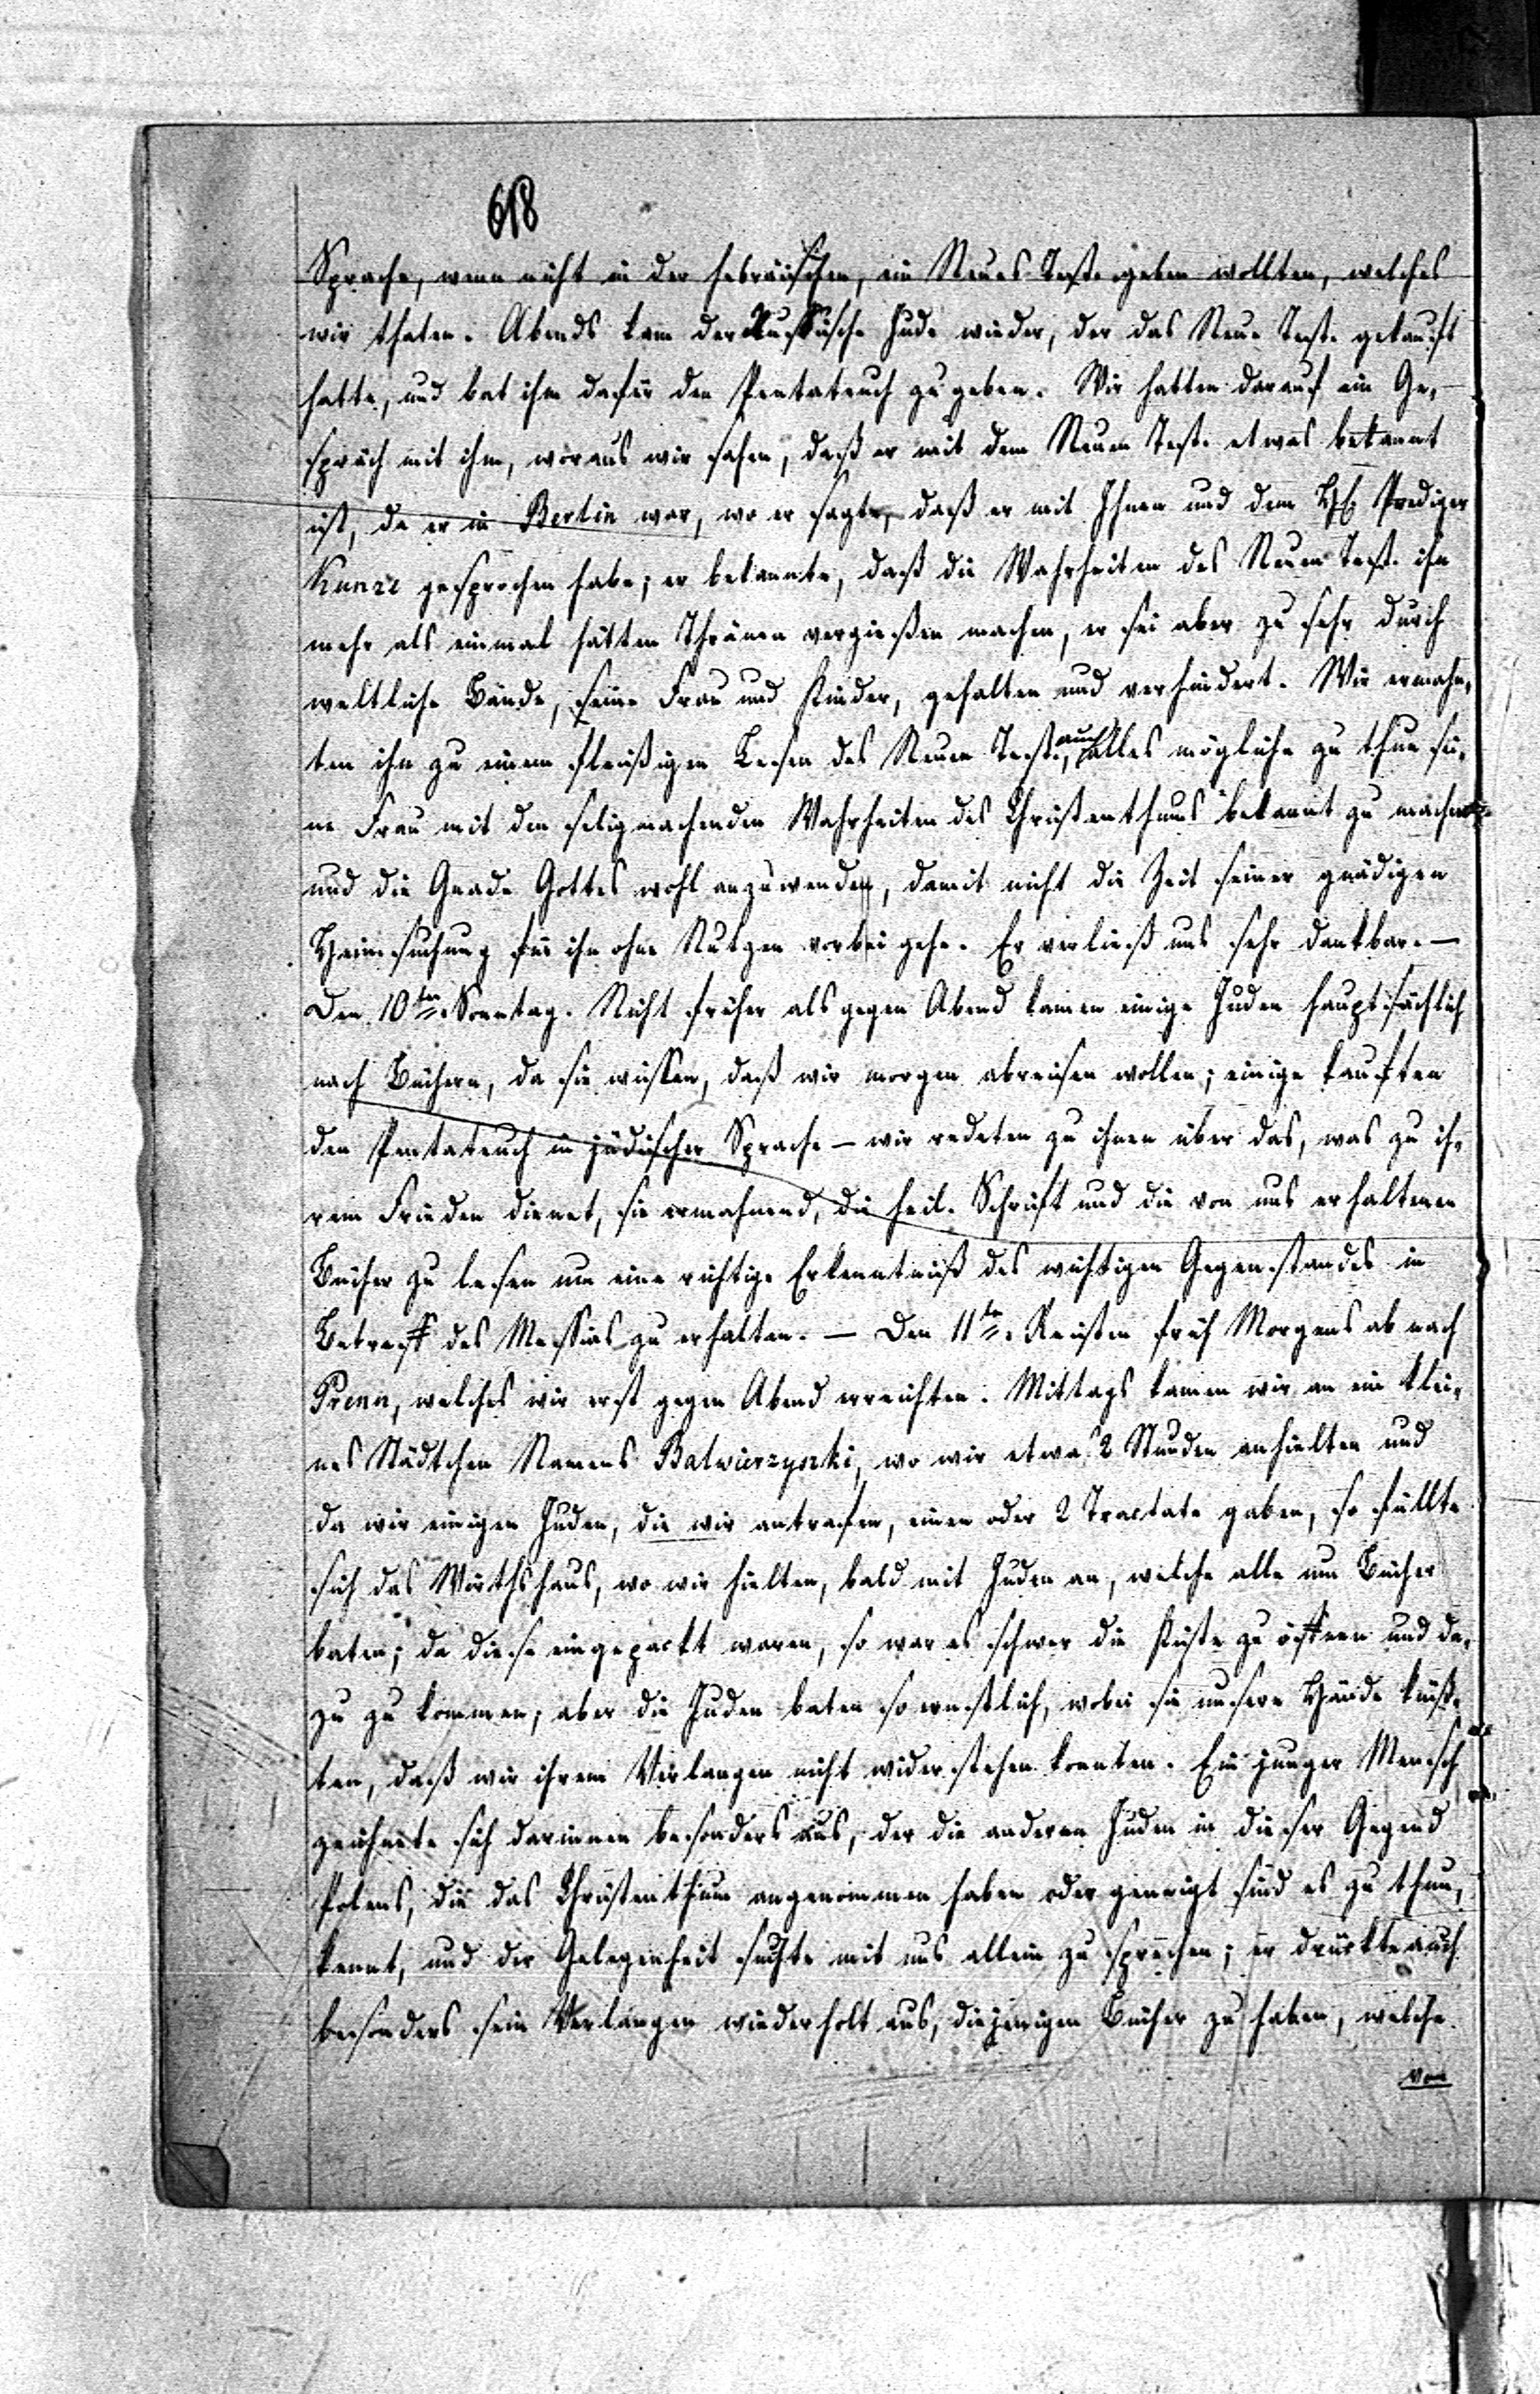 618
Sprache, wenn nicht in der hebräischen, ein Neues Test. geben wollten, welches
wir thaten. Abends kam der Russische Jude wieder, der das Neue Test. gekauft
hatte, und bat ihm dafür den Pentateuch zu geben. Wir hatten darauf ein Ge-
spräch mit ihm, woraus wir sahen, daß er mit dem Neuen Test. etwas bekannt
ist, da er in Berlin war, wo er sagte, daß er mit Ihnen und dem H. Prediger
Kunze gesprochen habe; er bekannte, daß die Wahrheiten des Neuen Test. ihn
mehr als einmal hätten Thränen vergießen machen, er sei aber zu sehr durch
weltliche Bande, seine Frau und Kinder, gehalten und verhindert. Wir ermahn-
ten ihn zu einem fleißigen Lesen des Neuen Test., auch alles mögliche zu thun sei-
ne Frau mit den seligmachenden Wahrheiten des Christenthums bekannt zu machen
und die Gnade Gottes wohl anzuwenden, damit nicht die Zeit seiner gnädigen
Heimsuchung für ihn ohne Nutzen vorbei gehe. Er verließ uns sehr dankbar. —
Den 10ten Sonntag. Nicht früher als gegen Abend kamen einige Juden hauptsächlich
nach Büchern, da sie wissen, daß wir morgen abreisen wollen; einige kauften
den Pentateuch in jüdischer Sprache — wir redeten zu ihnen über das, was zu ih-
rem Frieden dienet, sie ermahnend, die heil. Schrift und die von uns erhaltenen
Bücher zu lesen um eine richtige Erkenntniß des wichtigen Gegenstandes in
Betreff des Messias zu erhalten. — Den 11te. Reisten früh Morgens ab nach
Prenn, welches wir erst gegen Abend erreichten. Mittags kamen wir an ein klei-
nes Städtchen Namens Balwierzyszki, wo wir etwa 2 Stunden anhielten und
da wir einigen Juden, die wir antrafen, einen oder 2 Tractate gaben, so füllte
sich das Wirthshaus, wo wir hielten, bald mit Juden an, welche alle um Bücher
baten; da diese eingepackt waren, so war es schwer die Kiste zu öffnen und da-
zu zu kommen; aber die Juden baten so ernstlich, wobei sie unsere Hände küß-
ten, daß wir ihrem Verlangen nicht widerstehen konnten. Ein junger Mensch
zeichnete sich darinnen besonders aus, der die anderen Juden in dieser Gegend
Polens, die das Christenthum angenommen haben oder geneigt sind es zu thun,
kennt, und der Gelegenheit suchte mit uns allein zu sprechen; er drückte auch
besonders sein Verlangen wiederholt aus, diejenigen Bücher zu haben, welche
von